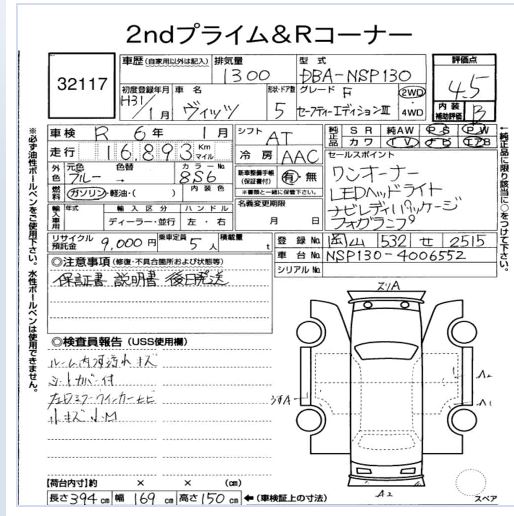 2ndプライム&Rコーナー
32117
車歴(自家用以外は記入) 排気量 1300 型式 DBA-NSP130
評価点 4.5
初度登録年月 H31/1月 車名 ヴィッツ 形状・ドア数 5 グレード F セーフティーエディションⅢ 2WD・4WD
内装補助評価 B
車検 R 6年 1月 シフト AT
純正品 SR 純AW PS PW
カワ TV ナビ エアB
走行 16,893 Km マイル 冷房 AAC
セールスポイント
ワンオーナー
LEDヘッドライト
ナビレディパッケージ
フォグランプ
外色 元色 ブルー 色替 → カラーNo 8S6
新車整備手帳(保証書付) 有・無
※書類と一緒に保管下さい。
燃料 ガソリン・軽油・( ) 内装色
名義変更期限 月 日
輸入車用 年式 輸入区分 ディーラー・並行 ハンドル 左・右
リサイクル預託金 9,000円 乗車定員 5人 積載量 t
登録No 岡山 532 せ 2515
車台No NSP130-4006552
シリアルNo
◎注意事項(修復・不具合箇所および状態等)
保証書 説明書 後日発送
◎検査員報告(USS使用欄)
ルーム内 汚れ キズ
シートカバー付
左ドアミラーウィンカーヒビ
小キズ 小M
ズリA
うすA
A2
A1
A2
スペア
【荷台内寸】約 × × (cm)
長さ394cm 幅169cm 高さ150cm ←(車検証上の寸法)
※必ず油性ボールペンをご使用下さい。水性ボールペンは使用できません。
←純正品に限り該当に○をつけて下さい。